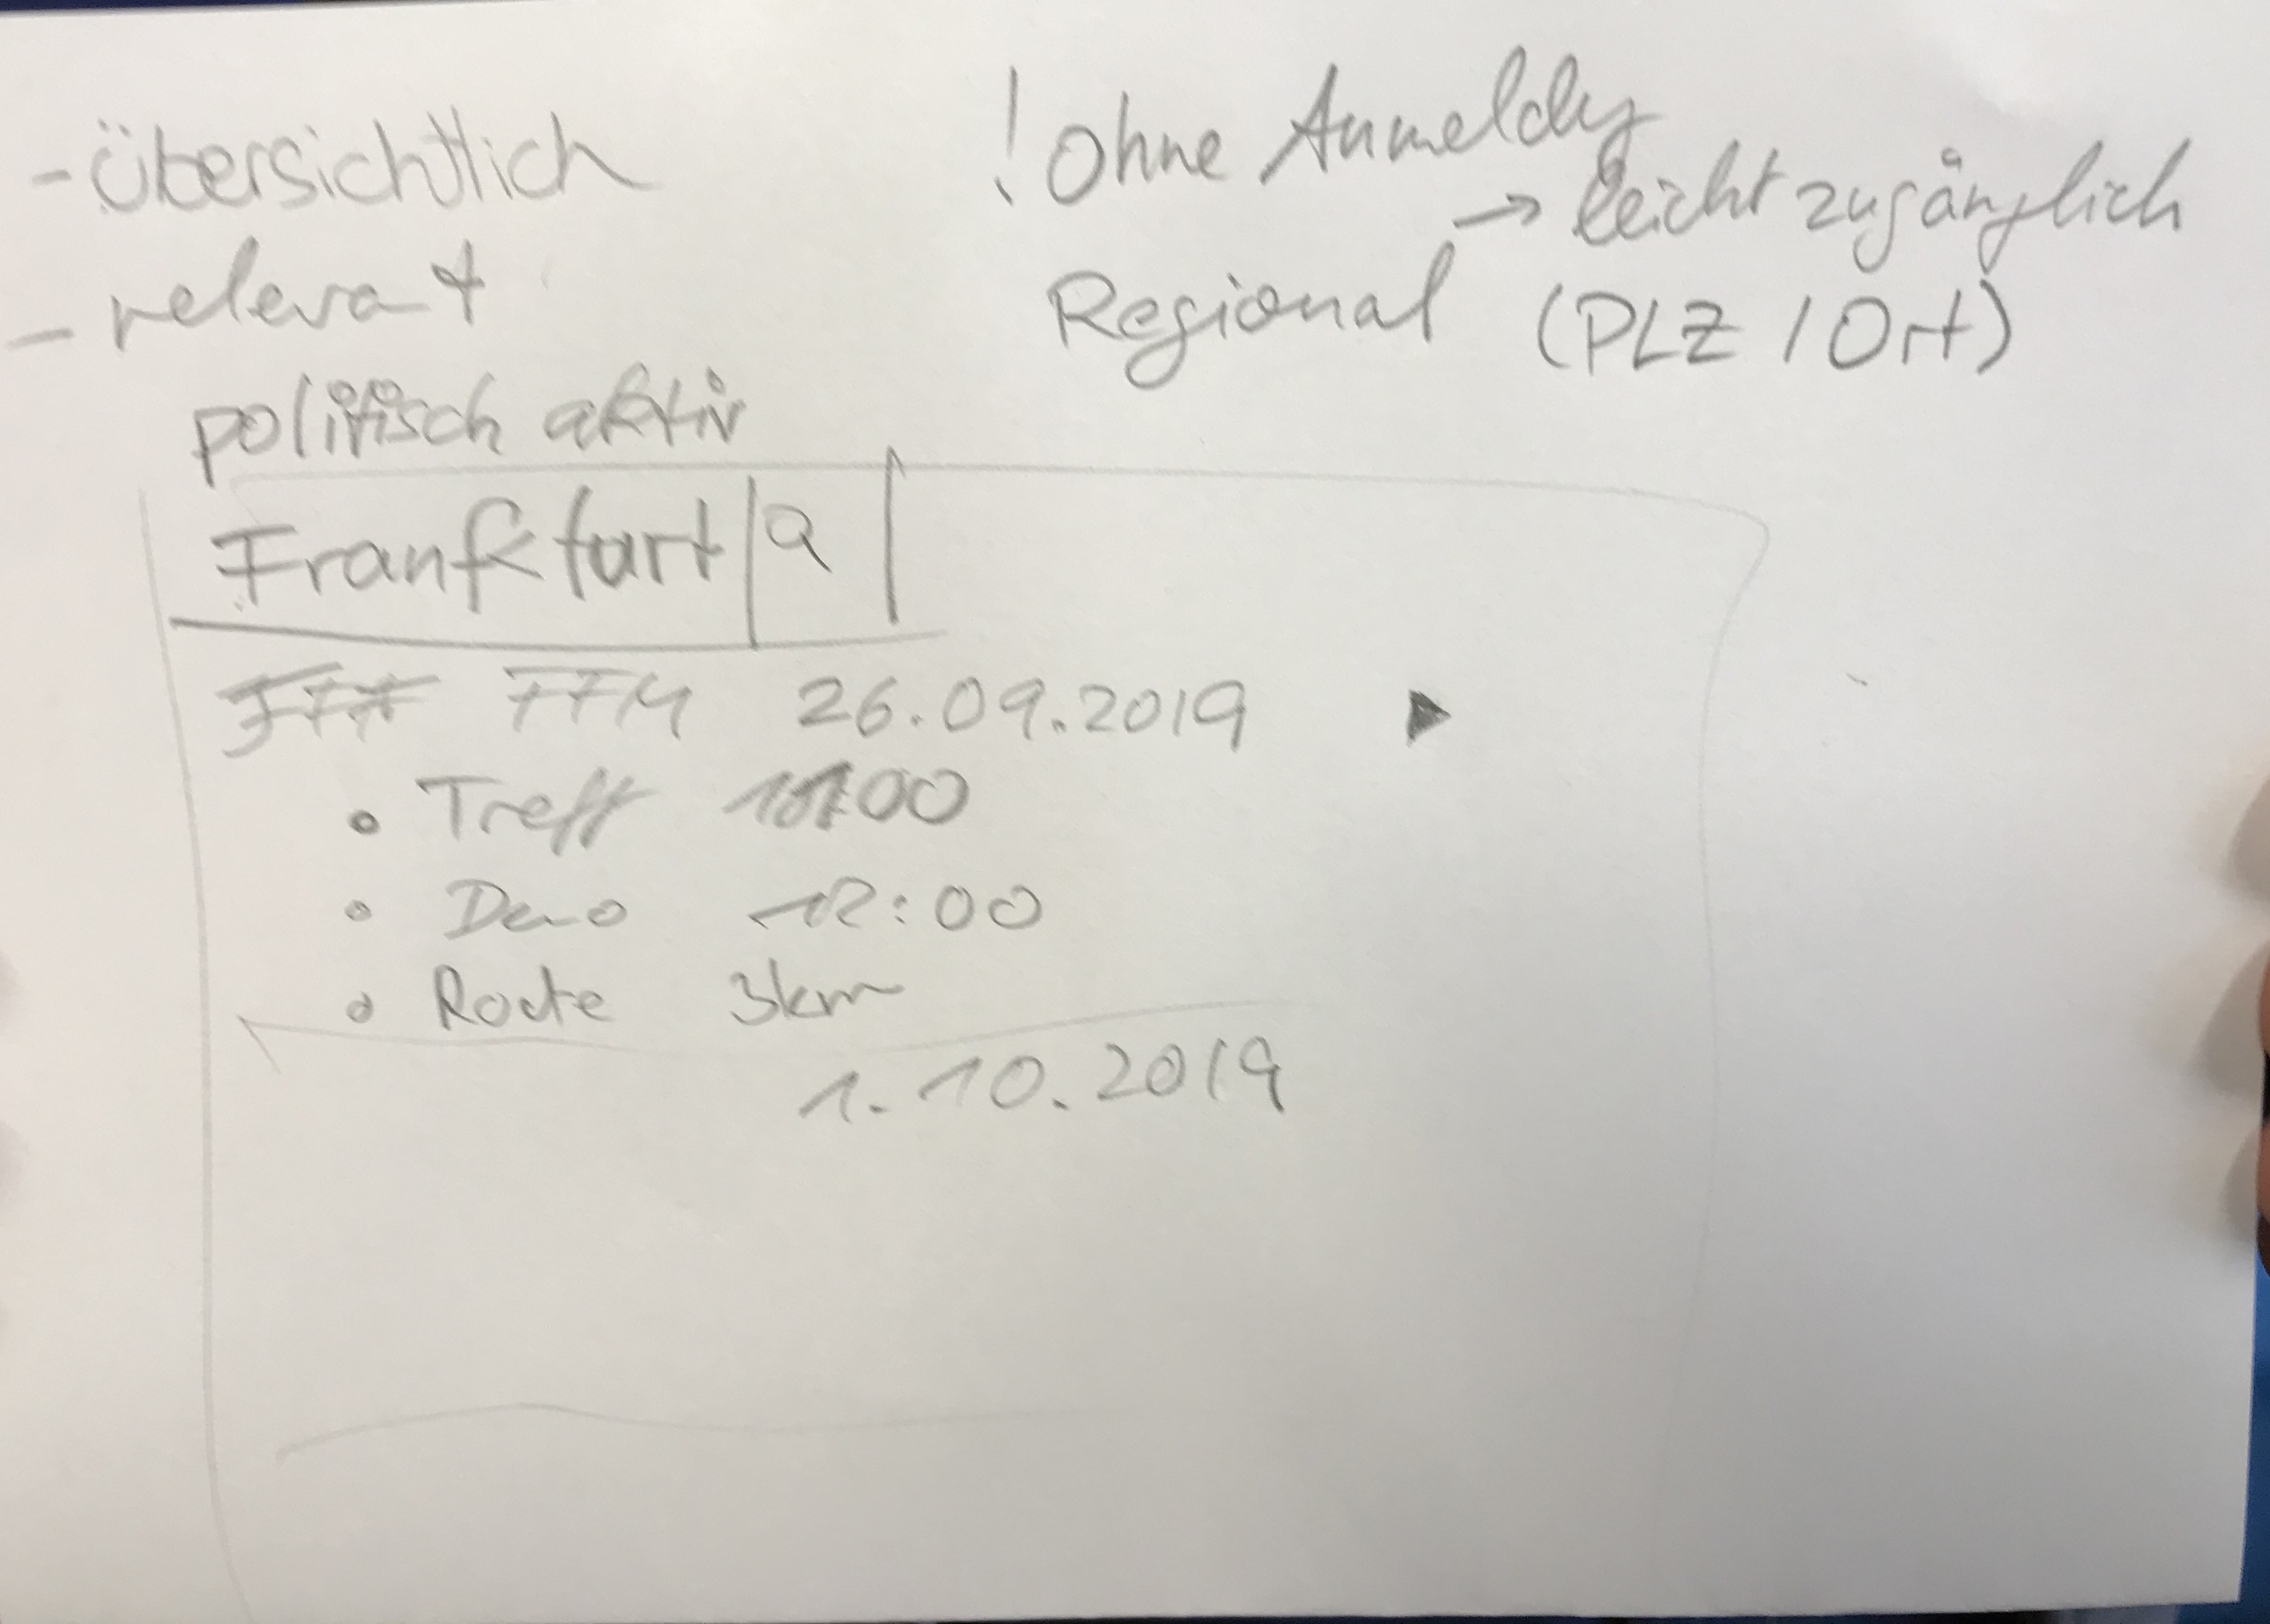 - übersichtlich
- relevant
politisch aktiv
! Ohne Anmeldung
→ leicht zugänglich
Regional (PLZ / Ort)
Frankfurt
FFM 26.09.2019
• Treff 11:00
• Demo 12:00
• Route 3km
1.10.2019